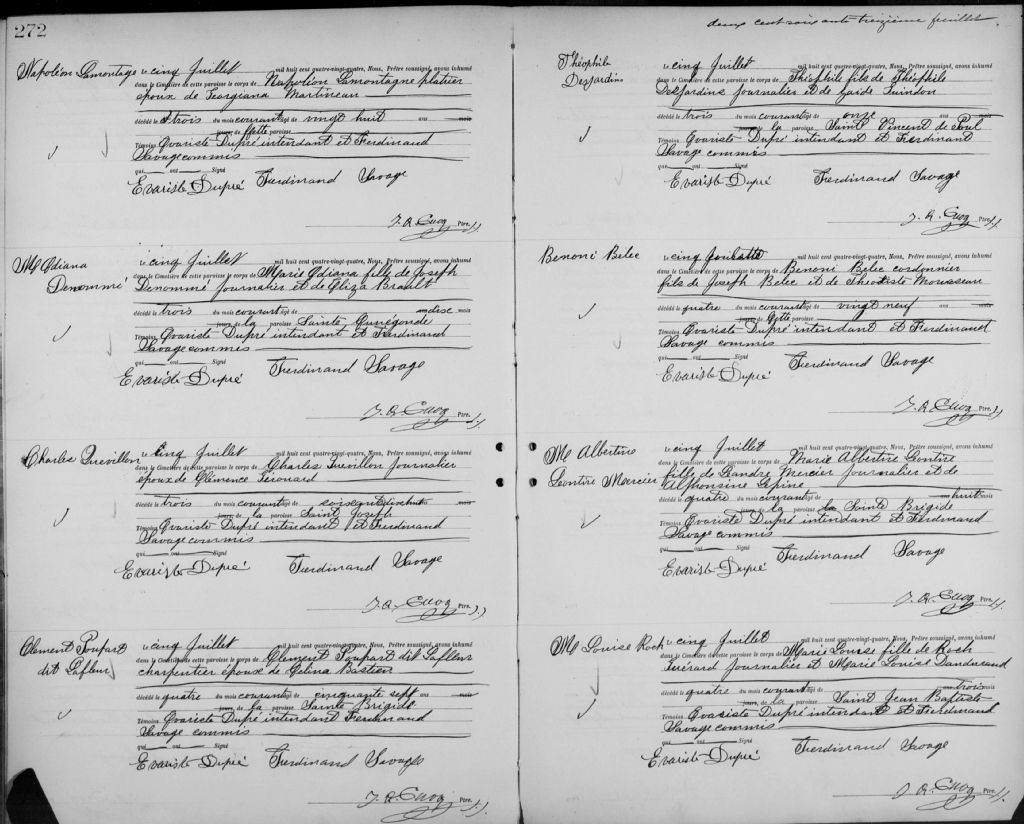 272
Napoléon Lamontage
le cinq Juillet mil huit cent quatre-vingt-quatre, Nous, Prêtre soussigné, avons inhumé
dans le Cimetière de cette paroisse le corps de Napoléon Lamontagne platrier
époux de Georgiana Martineau
décédé le trois du mois courant agé de vingt huit ans mois
jours de cette paroisse
Témoins Evariste Dupré intendant et Ferdinand
Savage commis
qui ont Signé
Evariste Dupré Ferdinand Savage
J. A. Cuoq Ptre.
M Odiana
Denommé
le cinq Juillet mil huit cent quatre-vingt-quatre, Nous, Prêtre soussigné, avons inhumé
dans le Cimetière de cette paroisse le corps de Marie Odiana fille de Joseph
Denommé journalier et de Eliza Brault
décédé le trois du mois courant agé de ans dix mois
jours de la paroisse Sainte Cunégonde
Témoins Evariste Dupré intendant et Ferdinand
Savage commis
qui ont Signé
Evariste Dupré Ferdinand Savage
J. A. Cuoq Ptre.
Charles Quevillon
le cinq Juillet mil huit cent quatre-vingt-quatre, Nous, Prêtre soussigné, avons inhumé
dans le Cimetière de cette paroisse le corps de Charles Quevillon journalier
époux de Clémence
décédé le trois du mois courant agé de mois
jours de la paroisse Saint Joseph
Témoins Evariste Dupré intendant et Ferdinand
Savage commis
qui ont Signé
Evariste Dupré Ferdinand Savage
J. A. Cuoq Ptre.
Clement Poupart
dit Lafleur
le cinq Juillet mil huit cent quatre-vingt-quatre, Nous, Prêtre soussigné, avons inhumé
dans le Cimetière de cette paroisse le corps de Clement Poupart dit Lafleur
charpentier époux de Célina Bastien
décédé le quatre du mois courant agé de cinquante sept ans mois
jours de la paroisse Sainte Brigide
Témoins Evariste Dupré intendant Ferdinand
Savage commis
qui ont Signé
Evariste Dupré Ferdinand Savage
J. A. Cuoq Ptre.
deux cent soixante treizième feuillet.
Théophile
Desjardins
le cinq Juillet mil huit cent quatre-vingt-quatre, Nous, Prêtre soussigné, avons inhumé
dans le Cimetière de cette paroisse le corps de Théophile fils de Théophile
Desjardins journalier et de Zaide Guindon
décédé le trois du mois courant agé de onze ans mois
jours de la paroisse Saint Vincent de Paul
Témoins Evariste Dupré intendant et Ferdinant
Savage commis
qui ont Signé
Evariste Dupré Ferdinand Savage
J. A. Cuoq Ptre.
Benoni Belec
le cinq Juillet mil huit cent quatre-vingt-quatre, Nous, Prêtre soussigné, avons inhumé
dans le Cimetière de cette paroisse le corps de Benoni Belec cordonnier
fils de Joseph Belec et de Theotiste Mousseau
décédé le quatre du mois courant agé de vingt neuf ans mois
jours de cette paroisse
Témoins Evariste Dupré intendant et Ferdinand
Savage commis
qui ont Signé
Evariste Dupré Ferdinand Savage
J. A. Cuoq Ptre.
M Albertine
Leontire Mercier
le cinq Juillet mil huit cent quatre-vingt-quatre, Nous, Prêtre soussigné, avons inhumé
dans le Cimetière de cette paroisse le corps de Marie Albertine Leontire
fille de Leandre Mercier journalier et de
Alphonsine Lepine
décédé le quatre du mois courant agé de ans huit mois
jours de la paroisse la Sainte Brigide
Témoins Evariste Dupré intendant et Ferdinand
Savage commis
qui ont Signé
Evariste Dupré Ferdinand Savage
J. A. Cuoq Ptre.
M Louise Roch
le cinq Juillet mil huit cent quatre-vingt-quatre, Nous, Prêtre soussigné, avons inhumé
dans le Cimetière de cette paroisse le corps de Marie Louise fille de Roch
journalier et Marie Louise Dandurand
décédé le quatre du mois courant agé de ans trois mois
jours, de la paroisse Saint Jean Baptiste
Témoins Evariste Dupré intendant et Ferdinand
Savage commis
qui ont Signé
Evariste Dupré Ferdinand Savage
J. A. Cuoq Ptre.